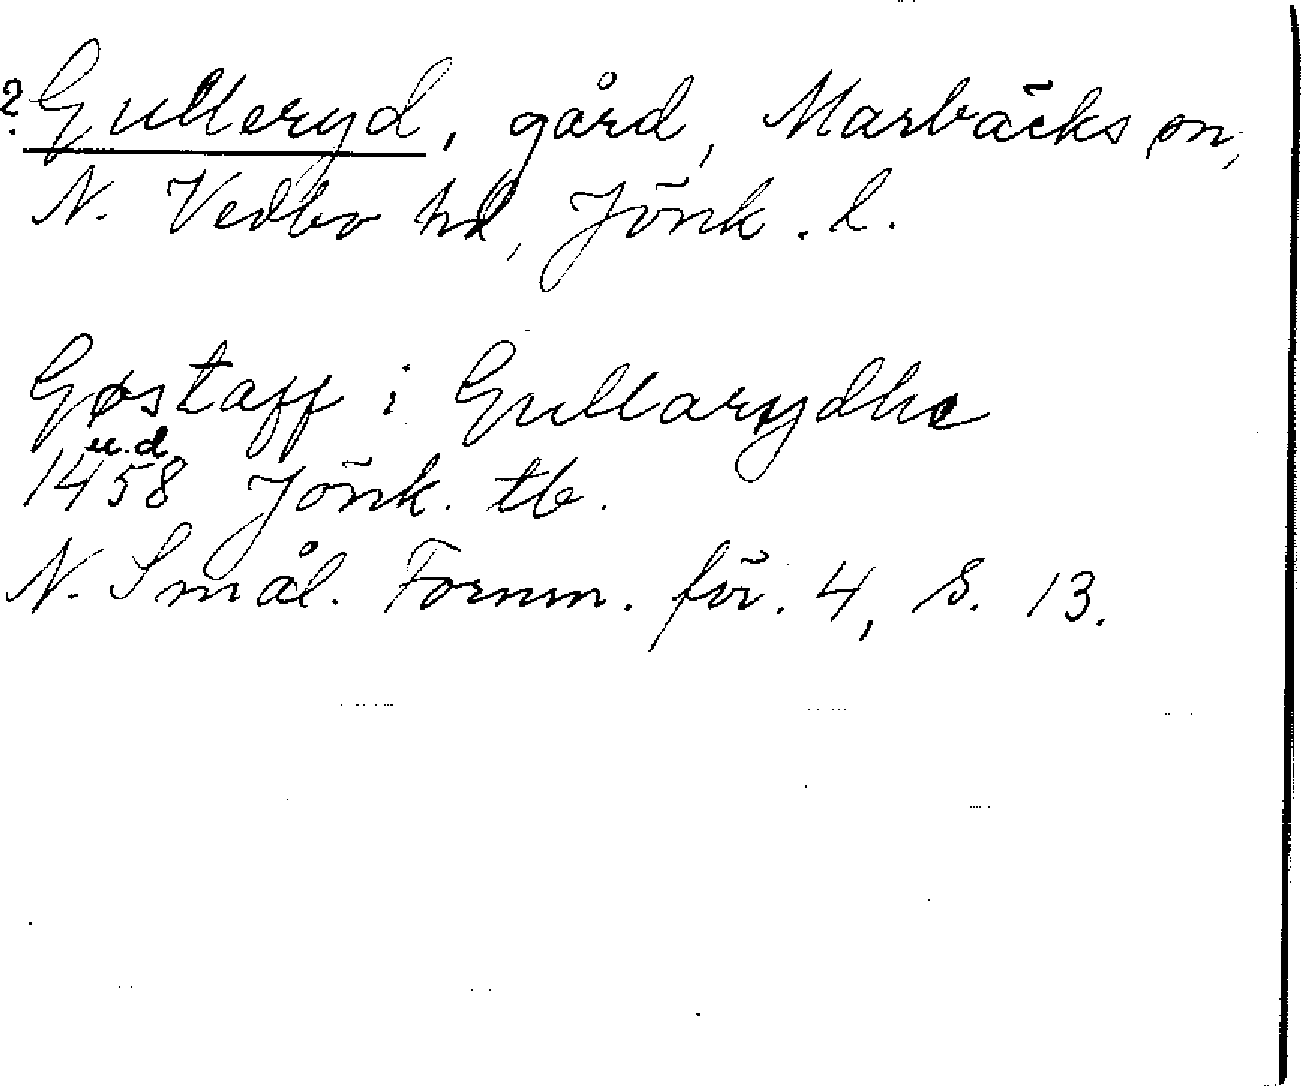 ? Gulleryd, gård, Marbäcks sn,
N. Vedbo hd, Jönk. l.
Gøstaff i Gullarydhe
u.d.
1458 Jönk. tb.
N. Smål. Fornm. för. 4, s. 13.